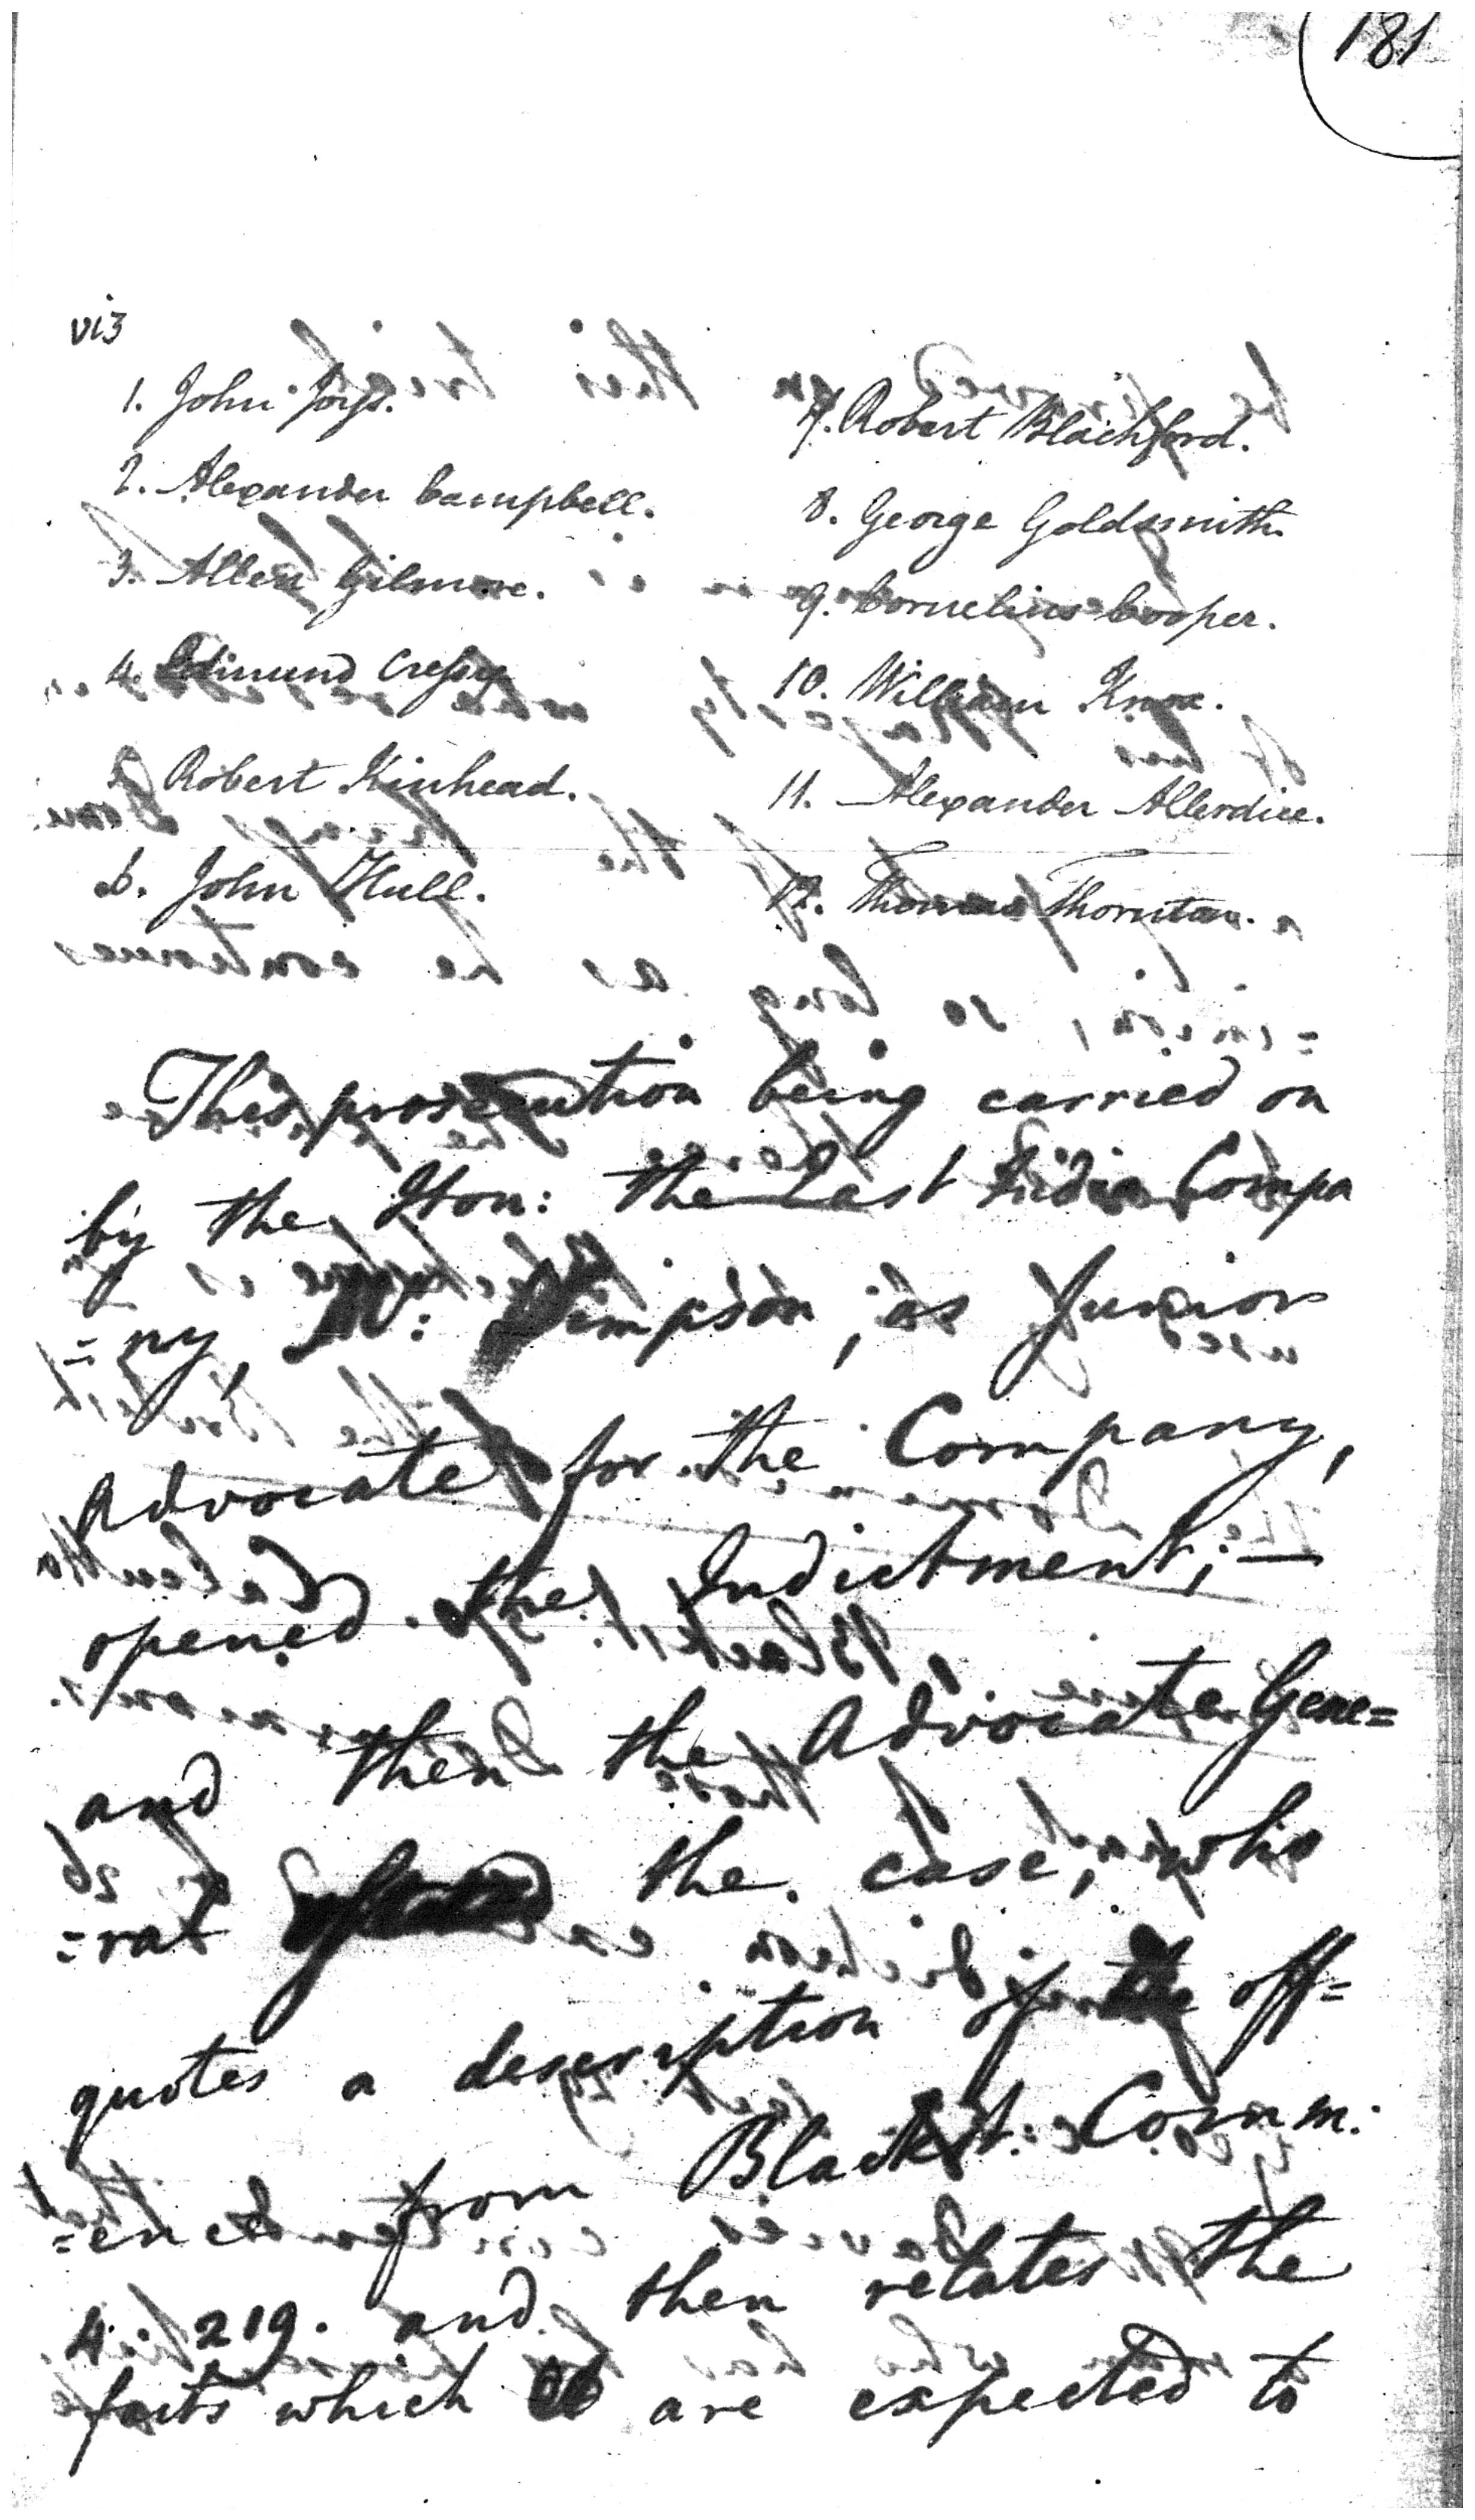 181
viz
1. John
2. Alexander Campbell.
3. Allen Gilmore.
4. Edmund Cressy
5. Robert Kinhead.
6. John Hull.
7. Robert Blachford.
8. George Goldsmith.
9. Cornelius Cooper.
10. William Knox.
11. Alexander Allerdice.
12. Thomas Thornton.
This prosecution being carried on
by the Hon: the East India Compa
=ny, Mr: Simpson, as Junior
Advocate for the Company,
opened the Indictment; —
and then the Advocate Gene=
=ral the case, who
quotes a description of the off=
=ence from Blackst: Comm:
4. 219. and then relates the
facts which are expected to